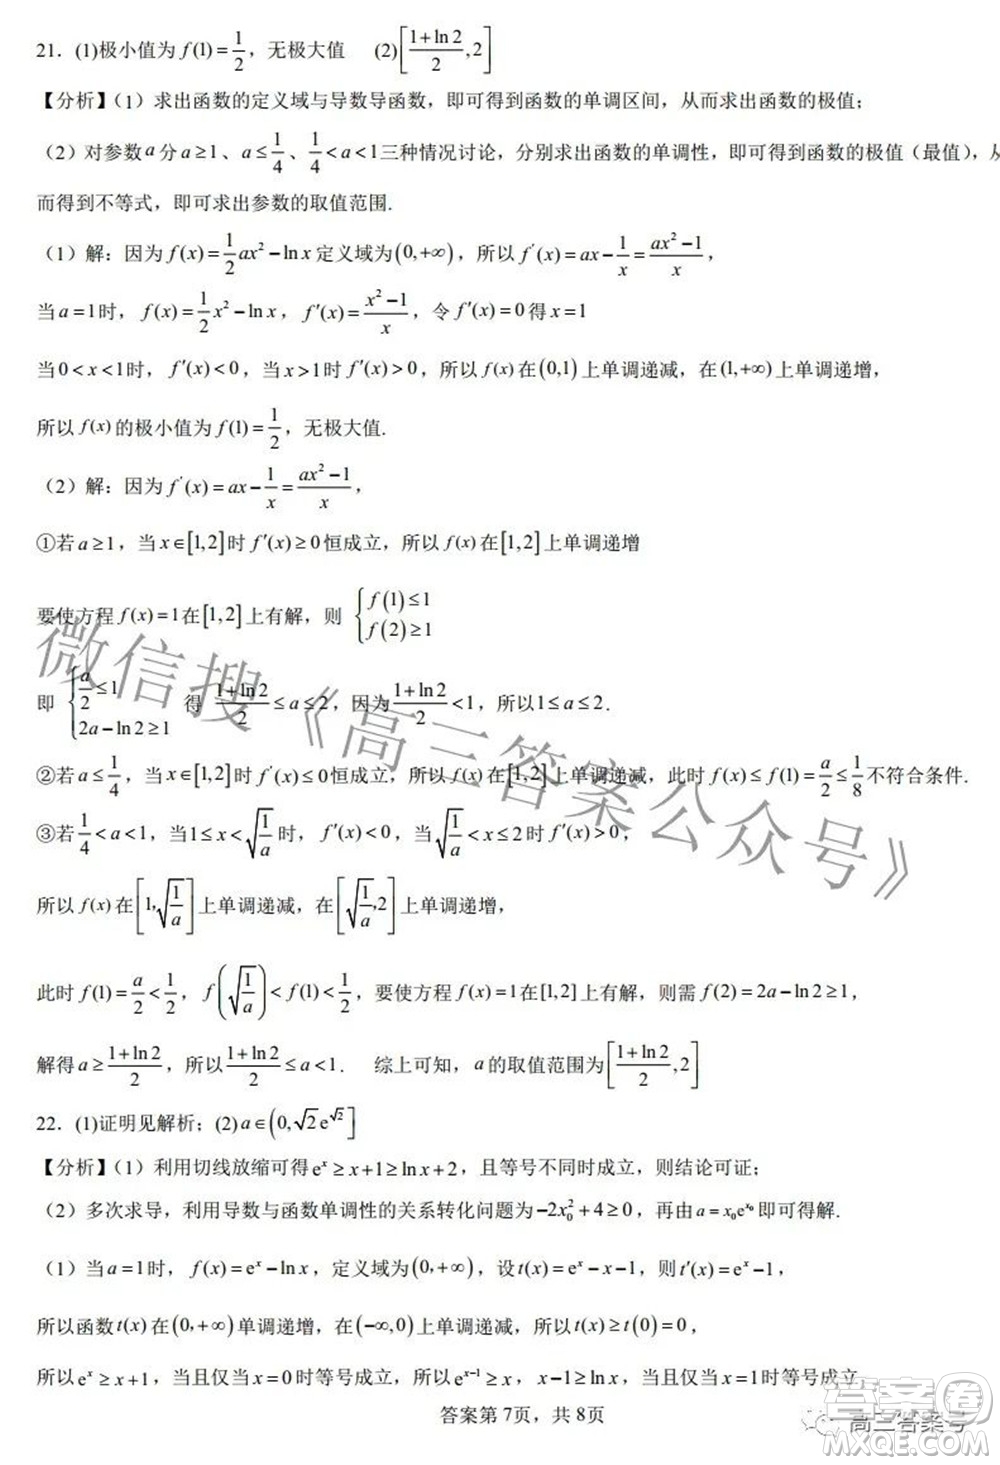 21．(1)极小值为 f(1)=1/2，无极大值　(2)[(1+ln2)/2,2]
【分析】（1）求出函数的定义域与导数导函数，即可得到函数的单调区间，从而求出函数的极值；
（2）对参数 a 分 a≥1、a≤1/4、1/4<a<1 三种情况讨论，分别求出函数的单调性，即可得到函数的极值（最值），从
而得到不等式，即可求出参数的取值范围.
（1）解：因为 f(x)=1/2 ax²−ln x 定义域为(0,+∞)，所以 f′(x)=ax−1/x=(ax²−1)/x，
当 a=1 时，f(x)=1/2 x²−ln x，f′(x)=(x²−1)/x，令 f′(x)=0 得 x=1
当 0<x<1 时，f′(x)<0，当 x>1 时 f′(x)>0，所以 f(x) 在(0,1)上单调递减，在(1,+∞)上单调递增，
所以 f(x) 的极小值为 f(1)=1/2，无极大值.
（2）解：因为 f′(x)=ax−1/x=(ax²−1)/x，
①若 a≥1，当 x∈[1,2] 时 f′(x)≥0 恒成立，所以 f(x) 在[1,2]上单调递增
要使方程 f(x)=1 在[1,2]上有解，则 {f(1)≤1 f(2)≥1
即 {a/2≤1 2a−ln2≥1 得 (1+ln2)/2≤a≤2，因为 (1+ln2)/2<1，所以 1≤a≤2．
②若 a≤1/4，当 x∈[1,2] 时 f′(x)≤0 恒成立，所以 f(x) 在[1,2]上单调递减，此时 f(x)≤f(1)=a/2≤1/8 不符合条件.
③若 1/4<a<1，当 1≤x<√(1/a) 时，f′(x)<0，当 √(1/a)<x≤2 时 f′(x)>0，
所以 f(x) 在[1,√(1/a)]上单调递减，在[√(1/a),2]上单调递增，
此时 f(1)=a/2<1/2，f(√(1/a))<f(1)<1/2，要使方程 f(x)=1 在[1,2]上有解，则需 f(2)=2a−ln2≥1，
解得 a≥(1+ln2)/2，所以 (1+ln2)/2≤a<1．　综上可知，a 的取值范围为[(1+ln2)/2,2]
22．(1)证明见解析；(2) a∈(0,√2e^√2]
【分析】（1）利用切线放缩可得 eˣ≥x+1≥ln x+2，且等号不同时成立，则结论可证；
（2）多次求导，利用导数与函数单调性的关系转化问题为 −2x₀²+4≥0，再由 a=x₀e^x₀ 即可得解.
（1）当 a=1 时，f(x)=eˣ−ln x，定义域为(0,+∞)，设 t(x)=eˣ−x−1，则 t′(x)=eˣ−1，
所以函数 t(x) 在(0,+∞)单调递增，在(−∞,0)上单调递减，所以 t(x)≥t(0)=0，
所以 eˣ≥x+1，当且仅当 x=0 时等号成立，所以 e^(x−1)≥x，x−1≥ln x，当且仅当 x=1 时等号成立，
答案第 7页，共 8页
微信搜《高三答案公众号》
高三答案号
答案圈
MXQE.COM